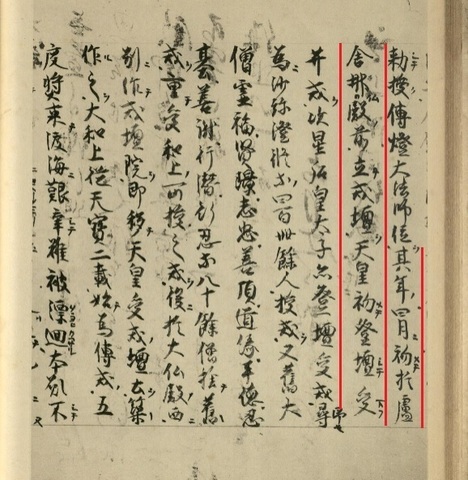 勅授傳燈大法師位其年四月初於盧
舎那殿前立戒壇天皇初登壇受
并戒次皇后皇太子亦登壇受戒尋
為沙弥澄修等四百卌餘人授戒又舊大
僧霊福賢璟志忠善頂道縁平徳忍
基善謝行潜行忍等八十餘僧捨舊
戒重受和上所授之戒後於大仏殿西
別作戒壇院即移天皇受戒壇土築
作之大和上從天寳二載始為傳戒五
度装束渡海艱辛雖被漂迴本願不